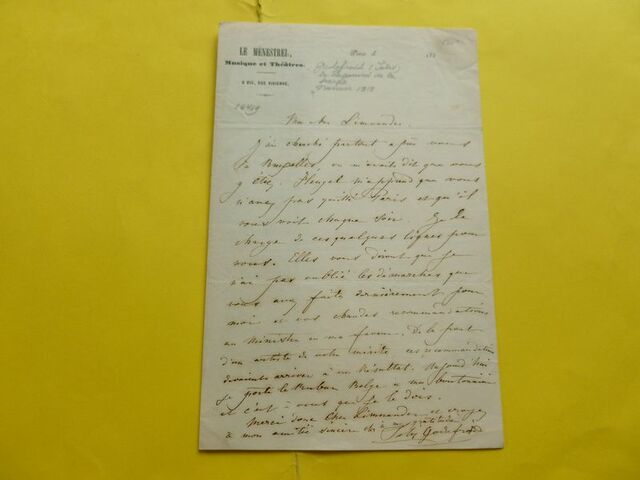 LE MÉNESTREL,
Musique et Théâtres.
2 BIS, RUE VIVIENNE.
Paris le 185
Godefroid (Jules)
de la
Mon cher Limnander.
J'ai cherché partout après vous
à Bruxelles où m'avait dit que vous
y étiez. Heugel m'apprend que vous
n'avez pas quitté Paris et qu'il
vous voit chaque soir. Je le
charge de ces quelques lignes pour
vous. Elles vous diront que je
n'ai pas oublié les démarches que
vous avez faites dernièrement pour
moi et vos chaudes recommandations
au Ministère en ma faveur. De la part
d'un artiste de votre mérite, ces recommandations
devaient arriver à un résultat. Aujourd'hui
je porte le Ruban Belge à ma boutonnière
et c'est à vous que je le dois.
Merci donc Cher Limnander et croyez
à mon amitié sincère et à ma gratitude.
Godefroid